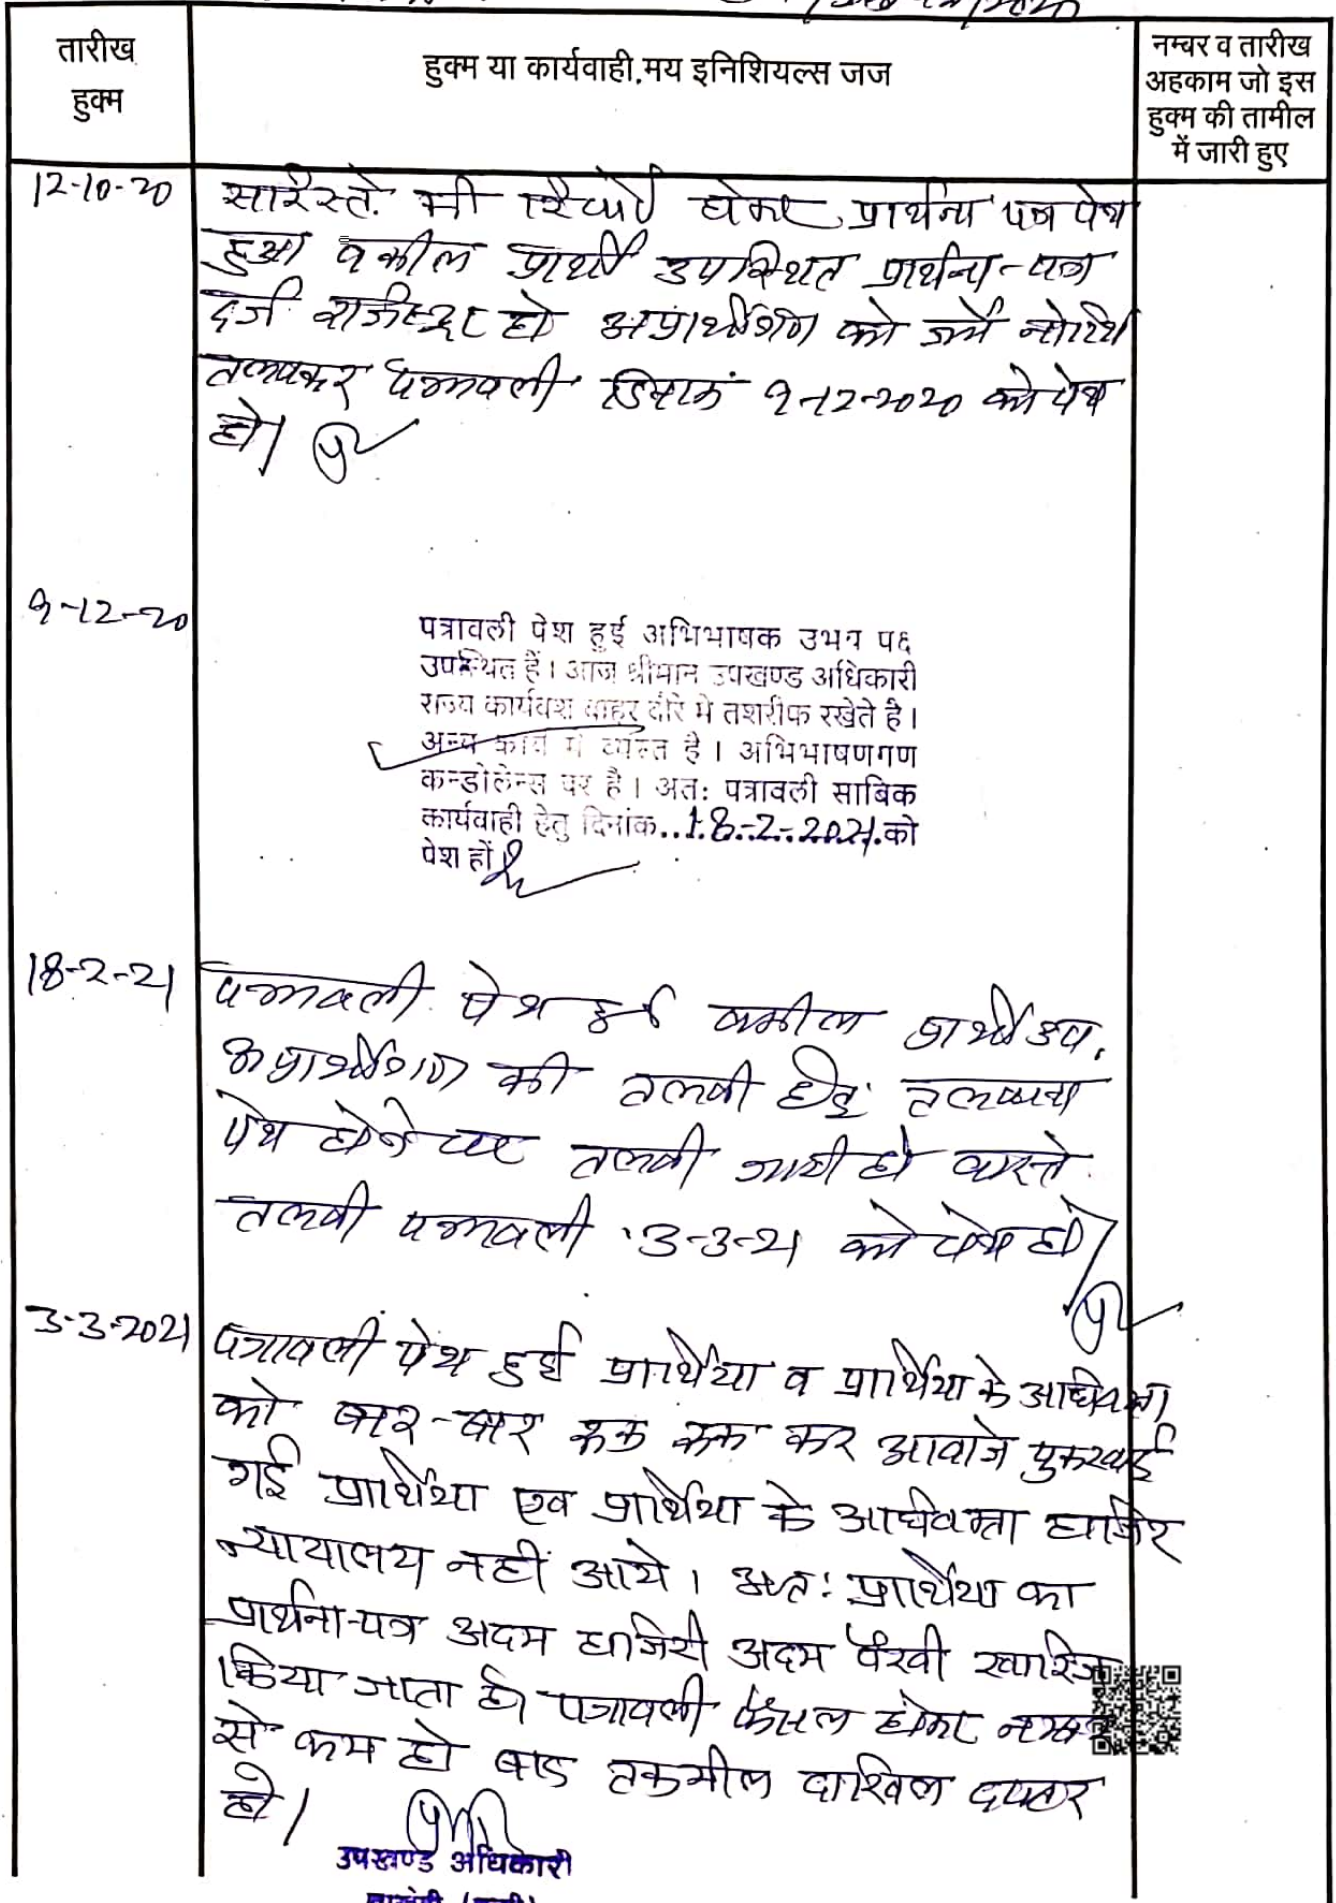 तारीख
हुक्म
हुक्म या कार्यवाही.मय इनिशियल्स जज
नम्बर व तारीख
अहकाम जो इस
हुक्म की तामील
में जारी हुए
12-10-20
की रिपोर्ट होकर प्रार्थना पत्र पेश
हुआ वकील प्रार्थी उपस्थित प्रार्थना-पत्र
दर्ज रजिस्टर हो अप्रार्थीगण को जर्ये नोटिस
तलबकर पत्रावली दिनांक 9-12-2020 को पेश
हो।
9-12-20
पत्रावली पेश हुई अभिभाषक उभय पक्ष
उपस्थित हैं। आज श्रीमान उपखण्ड अधिकारी
राज्य कार्यवश बाहर दौरे मे तशरीफ रखेते है।
अन्य कार्य में व्यस्त है। अभिभाषणगण
कन्डोलेन्स पर है। अतः पत्रावली साबिक
कार्यवाही हेतु दिनांक..18-2-2021.को
पेश हों
18-2-21
पत्रावली पेश हुई वकील प्रार्थी उप.
अप्रार्थीगण की तलबी हेतु तलबाना
पेश होने पर तलबी जारी हो वास्ते
तलबी पत्रावली 3-3-21 को पेश हो।
3-3-2021
पत्रावली पेश हुई प्रार्थिया व प्रार्थिया के अधिवक्ता
को बार-बार रूक रूक कर आवाजे पुकरवाई
गई प्रार्थिया एव प्रार्थिया के अधिवक्ता हाजिर
न्यायालय नहीं आये। अतः प्रार्थिया का
प्रार्थना-पत्र अदम हाजिरी अदम पैरवी खारिज
किया जाता है। पत्रावली फैसल होकर नम्बर
से कम हो बाद तकमील दाखिल दफ्तर
हो।
उपखण्ड अधिकारी